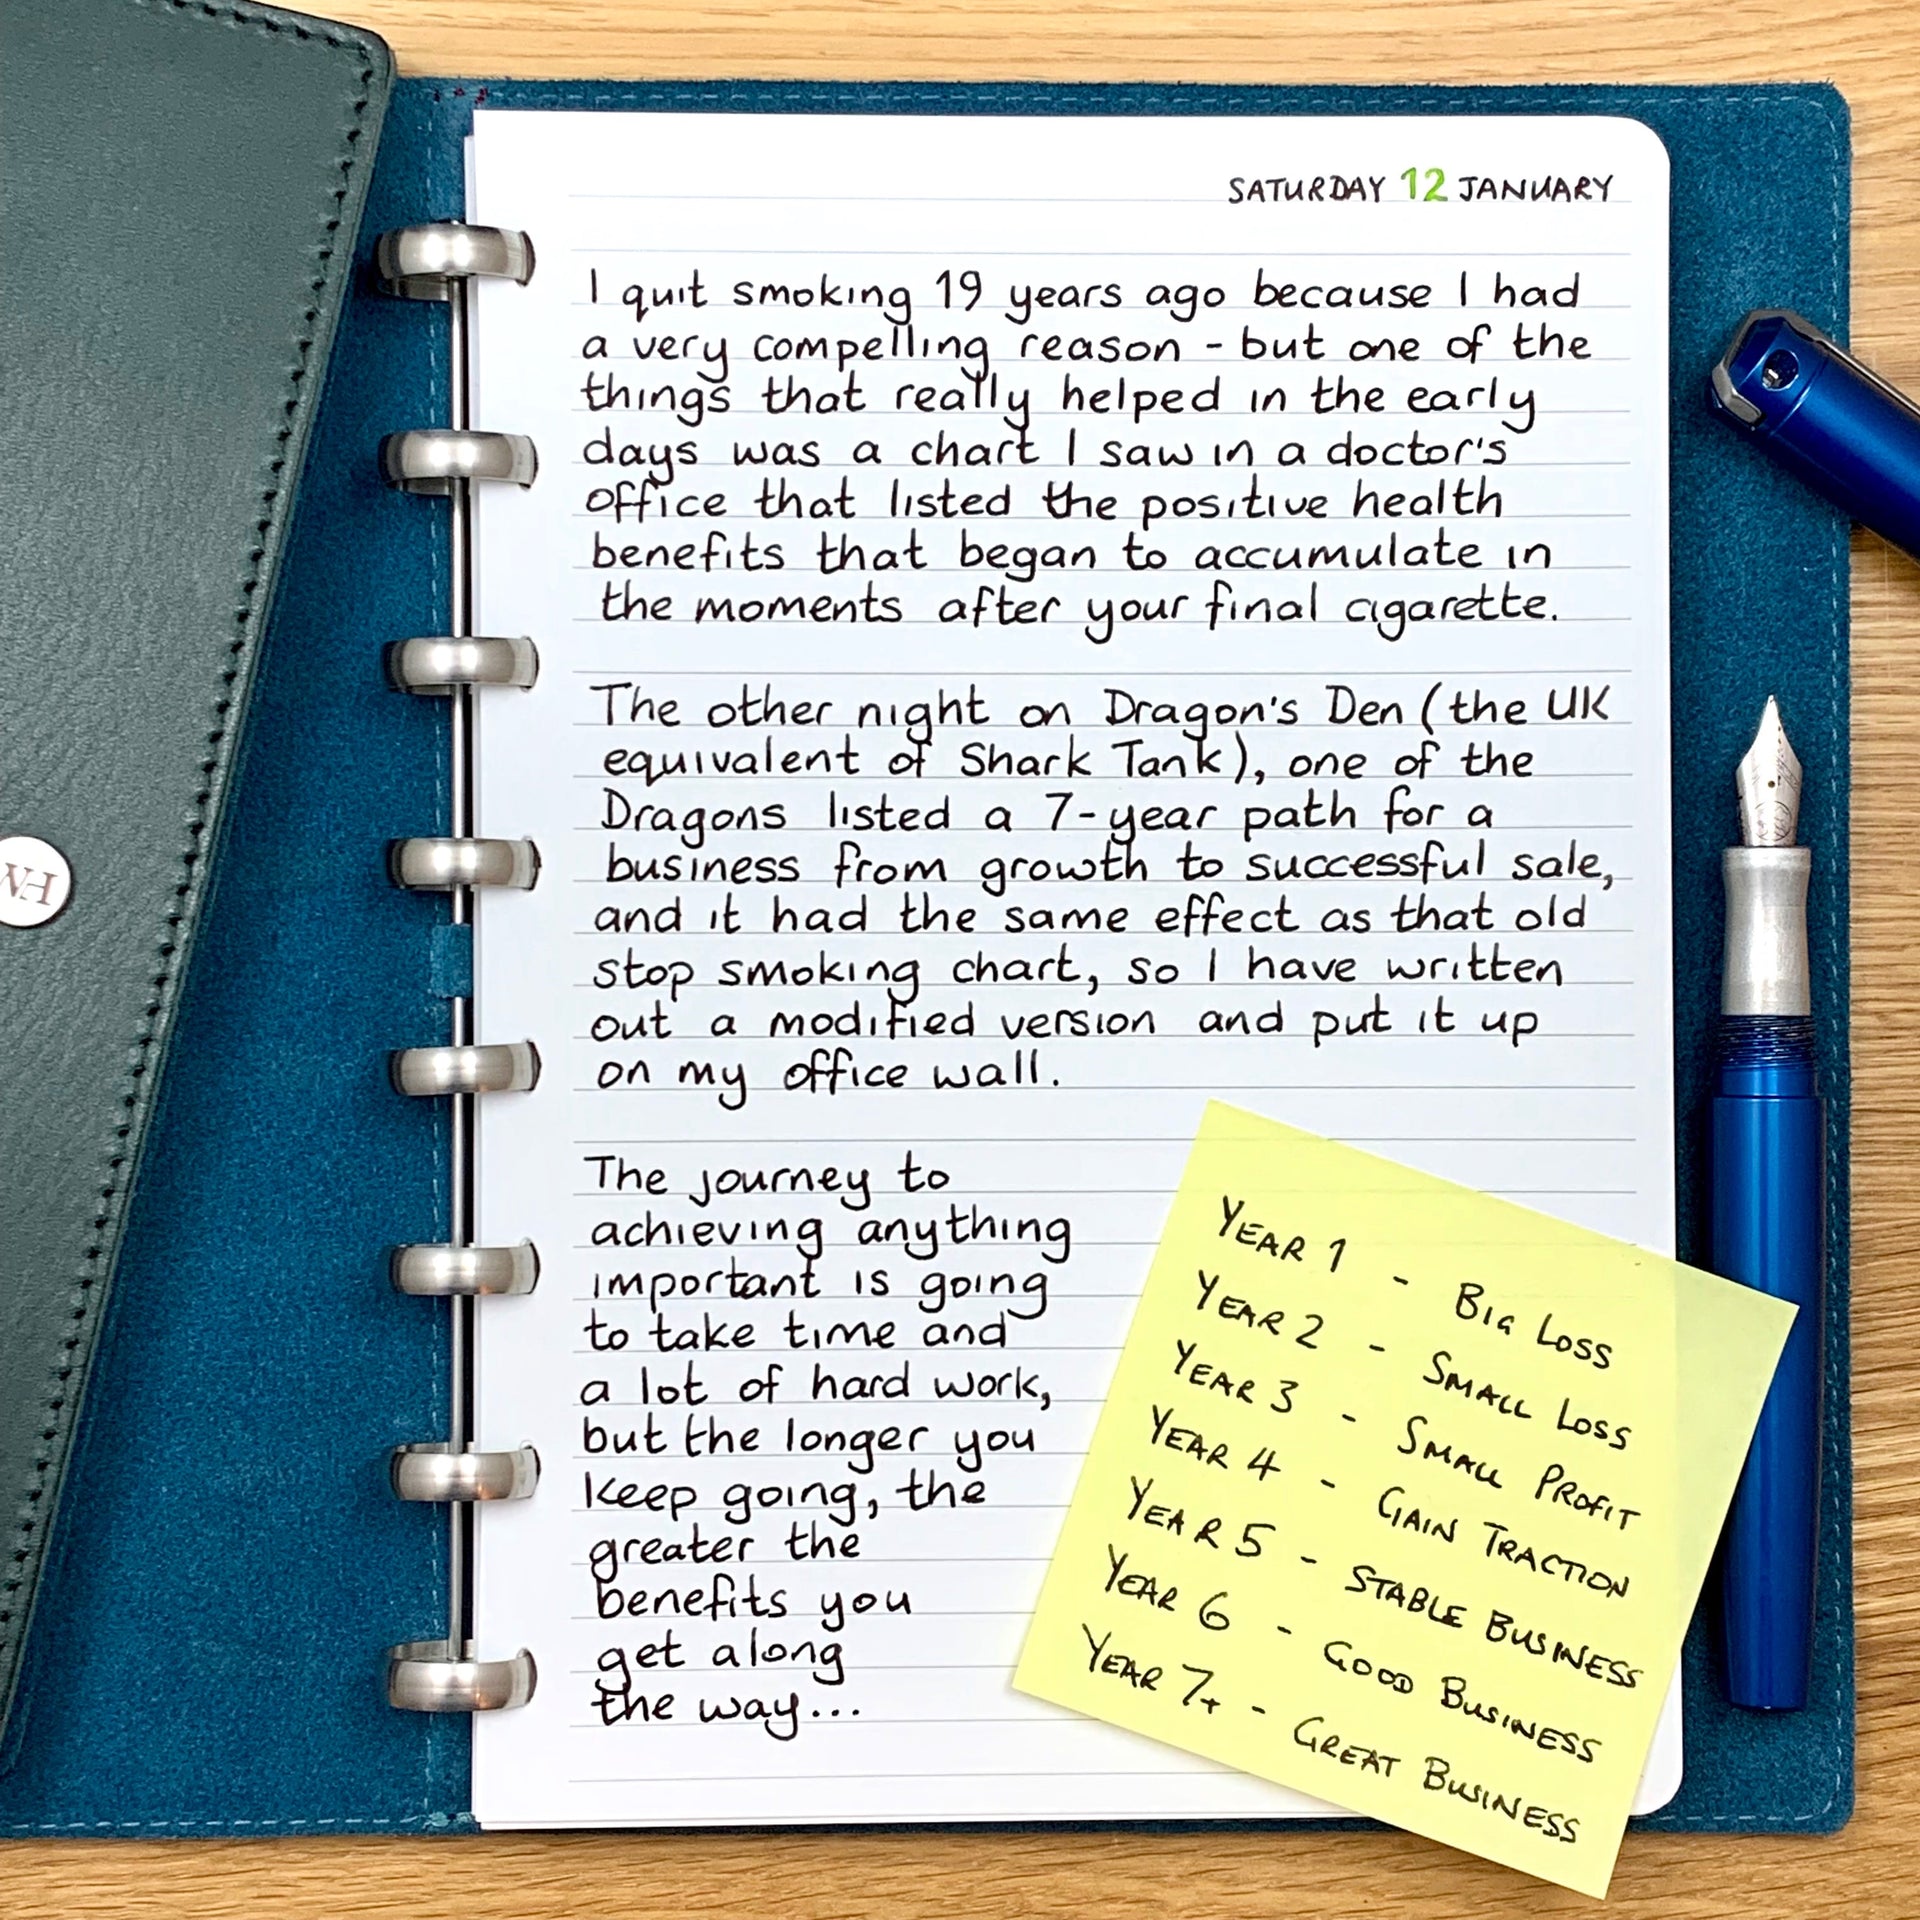 SATURDAY 12 JANUARY
I quit smoking 19 years ago because I had
a very compelling reason - but one of the
things that really helped in the early
days was a chart I saw in a doctor's
office that listed the positive health
benefits that began to accumulate in
the moments after your final cigarette.
The other night on Dragon's Den (the UK
equivalent of Shark Tank), one of the
Dragons listed a 7-year path for a
business from growth to successful sale,
and it had the same effect as that old
stop smoking chart, so I have written
out a modified version and put it up
on my office wall.
The journey to
achieving anything
important is going
to take time and
a lot of hard work,
but the longer you
keep going, the
greater the
benefits you
get along
the way...
YEAR 1 - BIG LOSS
YEAR 2 - SMALL LOSS
YEAR 3 - SMALL PROFIT
YEAR 4 - GAIN TRACTION
YEAR 5 - STABLE BUSINESS
YEAR 6 - GOOD BUSINESS
YEAR 7+ - GREAT BUSINESS